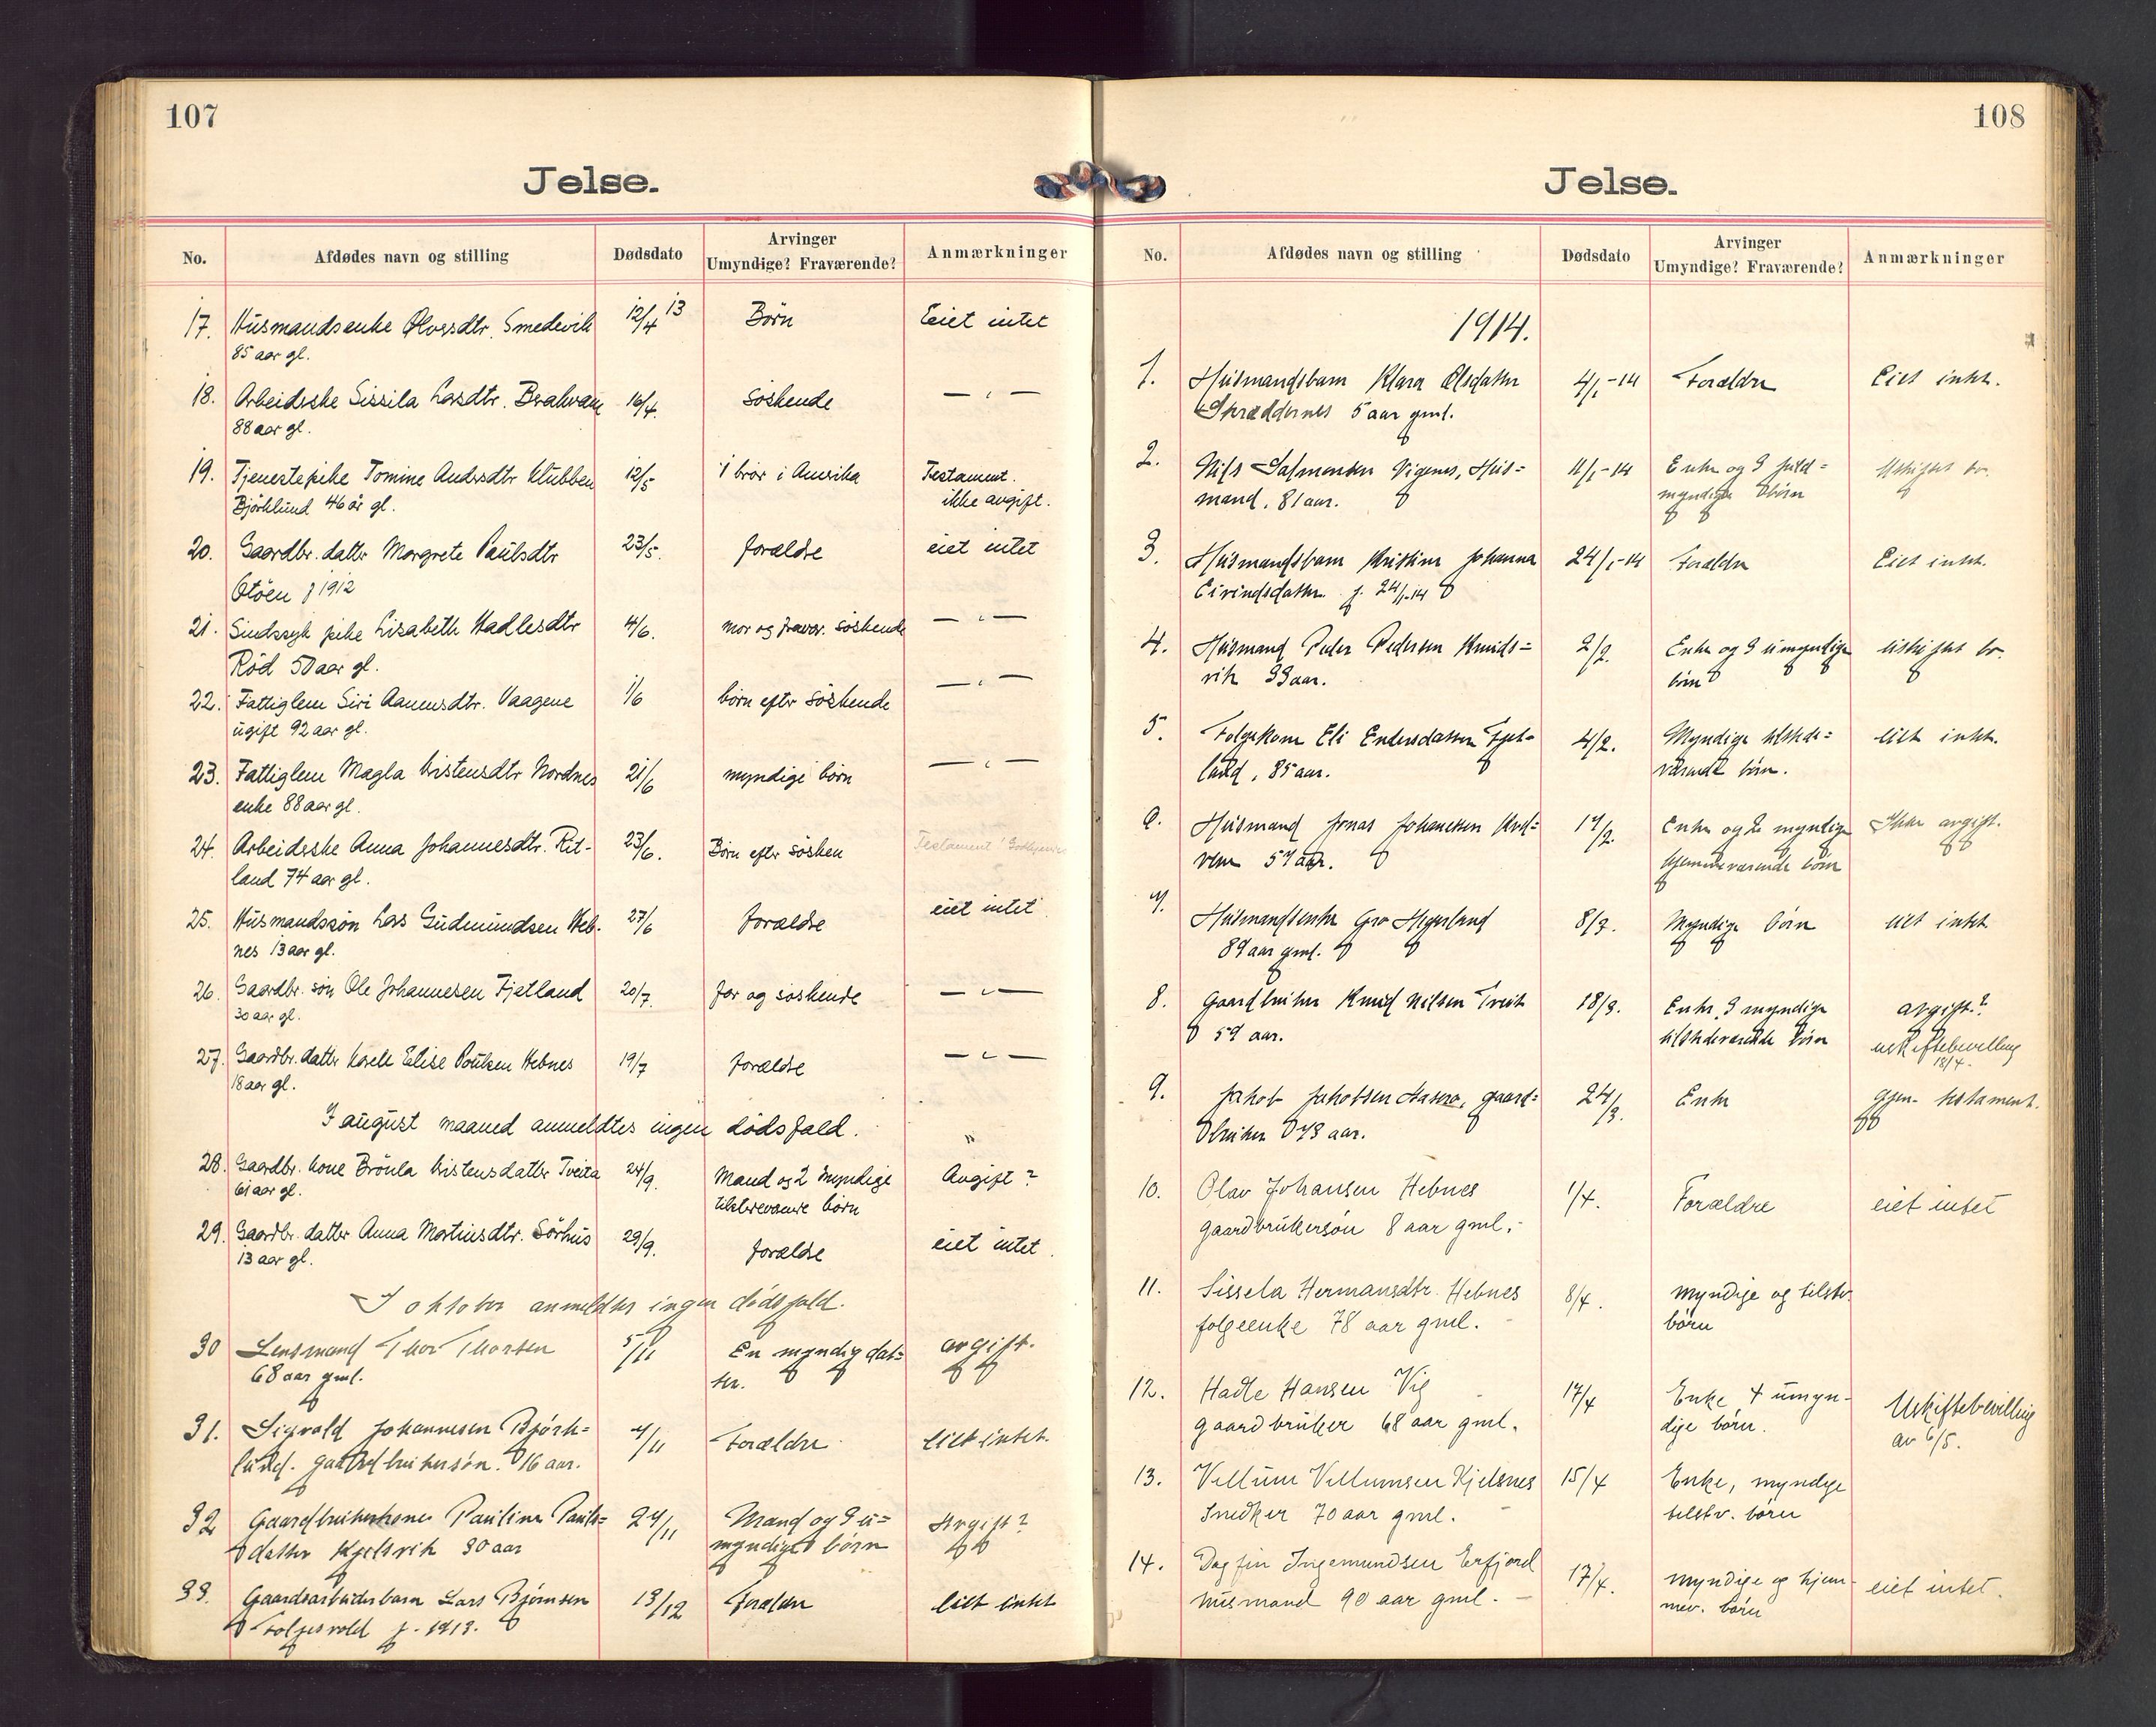 107
Jelse.
No. Afdødes navn og stilling Dødsdato Arvinger Umyndige? Fraværende? Anmærkninger
17. Husmandsenke Olversdtr. Smedevik 12/4 13 Børn Eiet intet
85 aar gl.
18. Arbeiderske Sissila Larsdtr. 16/4. Søskende — " —
88 aar gl.
19. Tjenestepike Tomine Andersdtr Klubben 12/5 1 bror i Amerika Testament.
Bjørklund 46 år gl. ikke avgift.
20. Gaardbr. datter Margrete Paulsdtr 23/5. forældre eiet intet
Otöen f 1912
21. Sindssyk pike Lisabeth Hadlesdtr 4/6. mor og fravær. søskende — " —
Rød 50 aar gl.
22. Fattiglem Siri Aanensdtr. Vaagene 1/6 børn efter søskende — " —
ugift 92 aar gl.
23. Fattiglem Magla Kristensdtr Nordnes 21/6 myndige børn — " —
enke 88 aar gl.
24. Arbeiderske Anna Johannesdtr. Rit- 23/6. Børn efter søsken Testament
land 74 aar gl.
25. Husmandssøn Lars Gudmundsen Heb- 27/6 forældre eiet intet
nes 13 aar gl.
26. Gaardbr. søn Ole Johannesen Fjetland 20/7. far og søskende — " —
30 aar gl.
27. Gaardbr. datter Karele Elise Poulsen Hebnes 19/7 forældre — " —
18 aar gl.
I august maaned anmeldtes ingen dødsfald. "
28. Gaardbr. kone Brönla Kristensdatter Tveita 24/9. Mand og 2 myndige Avgift?
61 aar gl. børn
29. Gaardbr. datter Anna Martinsdtr. Sörhus 29/9. forældre eiet intet.
13 aar gl.
I oktober anmeldtes ingen dødsfald.
30 Lensmand Thor Thorsen 5/11 En myndig dat= avgift.
68 aar gml. ter.
31. Sigvald Johannesen Bjørk= 7/11 Forældre eiet intet.
lund. gaardbrukersøn. 16 aar.
32 Gaardbrukerkone Pauline Pauls= 27/11 Mand og 3 u= Avgift?
datter Kjelsvik 30 aar myndige børn
33. Gaardsarbeiderbarn Lars Bjørnsen 13/12 Forældre eiet intet
f. 1913.
108
Jelse.
No. Afdødes navn og stilling Dødsdato Arvinger Umyndige? Fraværende? Anmærkninger
1914.
1. Husmandsbarn Klara Olsdatter 4/1-14 Forældre Eiet intet.
5 aar gml.
2. Nils Salmonsen Vigenes, Hus= 11/1-14 Enke og 3 fuld= Uskiftet bo.
mand, 81 aar. myndige børn
3. Husmandsbarn Kristine Johanna 24/1-14 Forældre Eiet intet.
Eivindsdatter. f. 24/1-14
4. Husmand Peder Pedersen Knuds= 2/2. Enke og 3 umyndige uskiftet bo.
vik 39 aar. børn
5. Folgekone Eli Endersdatter Fjet= 4/2. Myndige tilstede= eiet intet.
land, 85 aar. værende børn.
6. Husmand Jonas Johanesen 17/2. Enke og 2 myndige Ikke avgift.
57 aar. hjemmeværende børn
7. Husmandsenke Gro Hegerland 8/3. Myndige børn eiet intet
89 aar gml.
8. Gaardbruker Knud Nilsen Tveit 18/3. Enke, 3 myndige avgift?
59 aar. tilstedeværende børn uskiftebevilling
18/4.
9. Jakob Jakobsen gaard= 24/3. Enke gjen. testament.
bruker 73 aar.
10. Olav Johansen Hebnes 1/4. Forældre eiet intet
gaardbrukersøn 8 aar gml.
11. Sissela Hermansdtr. Hebnes 8/4. myndige og tilstv.
folgeenke 78 aar gml. børn
12. Hadle Hansen Vig 17/4 Enke, 4 umyn- Uskiftebevilling
gaardbruker 68 aar gml. dige børn. av 6/5.
13. Vellum Vellumsen Kjelsnes 15/4 Enke, myndige
Snedker 70 aar gml. tilstv. børn
14. Dagfin Ingemundsen Erfjord 17/4. myndige og hjem- eiet intet.
husmand 90 aar gml. mev. børn